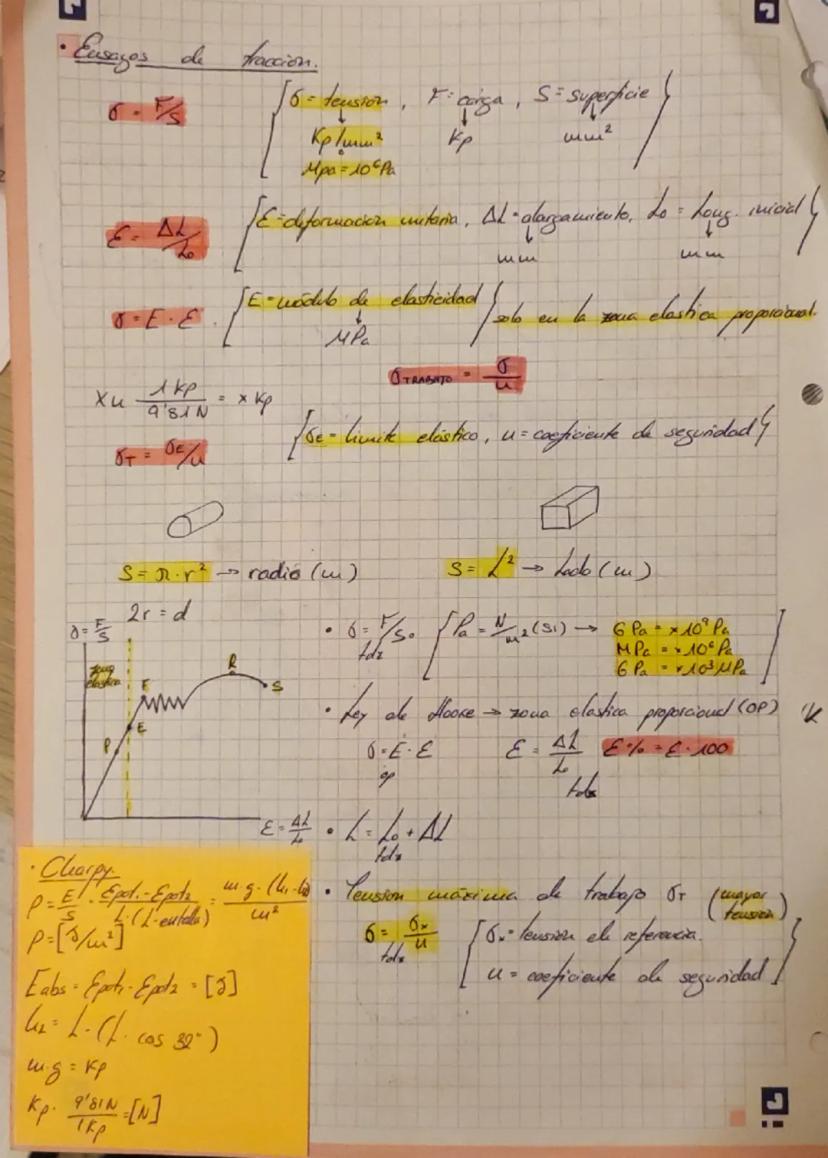 · Ensayos de traccion.
σ = F/S [σ = tension, F = carga, S = superficie]
Kp/mm² Kp mm²
Mpa = 10⁶ Pa
ε = ΔL/L₀ [ε = deformacion unitaria, ΔL = alargamiento, L₀ = Long. inicial]
mm mm
σ = E · ε. [E = módulo de elasticidad] solo en la zona elastica proporcional.
MPa
σ TRABAJO = σ/n
XN 1 Kp/9'81 N = x Kp
σT = σE/n [σE = limite elástico, n = coeficiente de seguridad]
S = π · r² → radio (m) S = L² → Lado (m)
2r = d
σ = F/S
zona elastica
P E F R S
ε = ΔL/L₀
· σ = F/S₀ [Pa = N/m² (SI) → GPa = x10⁹ Pa
tdz
MPa = x10⁶ Pa
GPa = x10³ MPa]
· Ley de Hooke → zona elastica proporcional (OP)
σ = E · ε ε = ΔL/L₀ ε% = ε · 100
op tdz
· L = L₀ + ΔL
tdz
· Tension máxima de trabajo σT (mayor tension)
σ = σx/n [σx = tension de referencia.
tdz
n = coeficiente de seguridad]
· Charpy.
P = E/S = Epot1 - Epot2/L·(L-entalla) = m·g·(h1-h2)/m²
P = [J/m²]
Eabs = Epot1 - Epot2 = [J]
h2 = L - (L · cos 32°)
m·g = Kp
Kp · 9'81N/1Kp = [N]